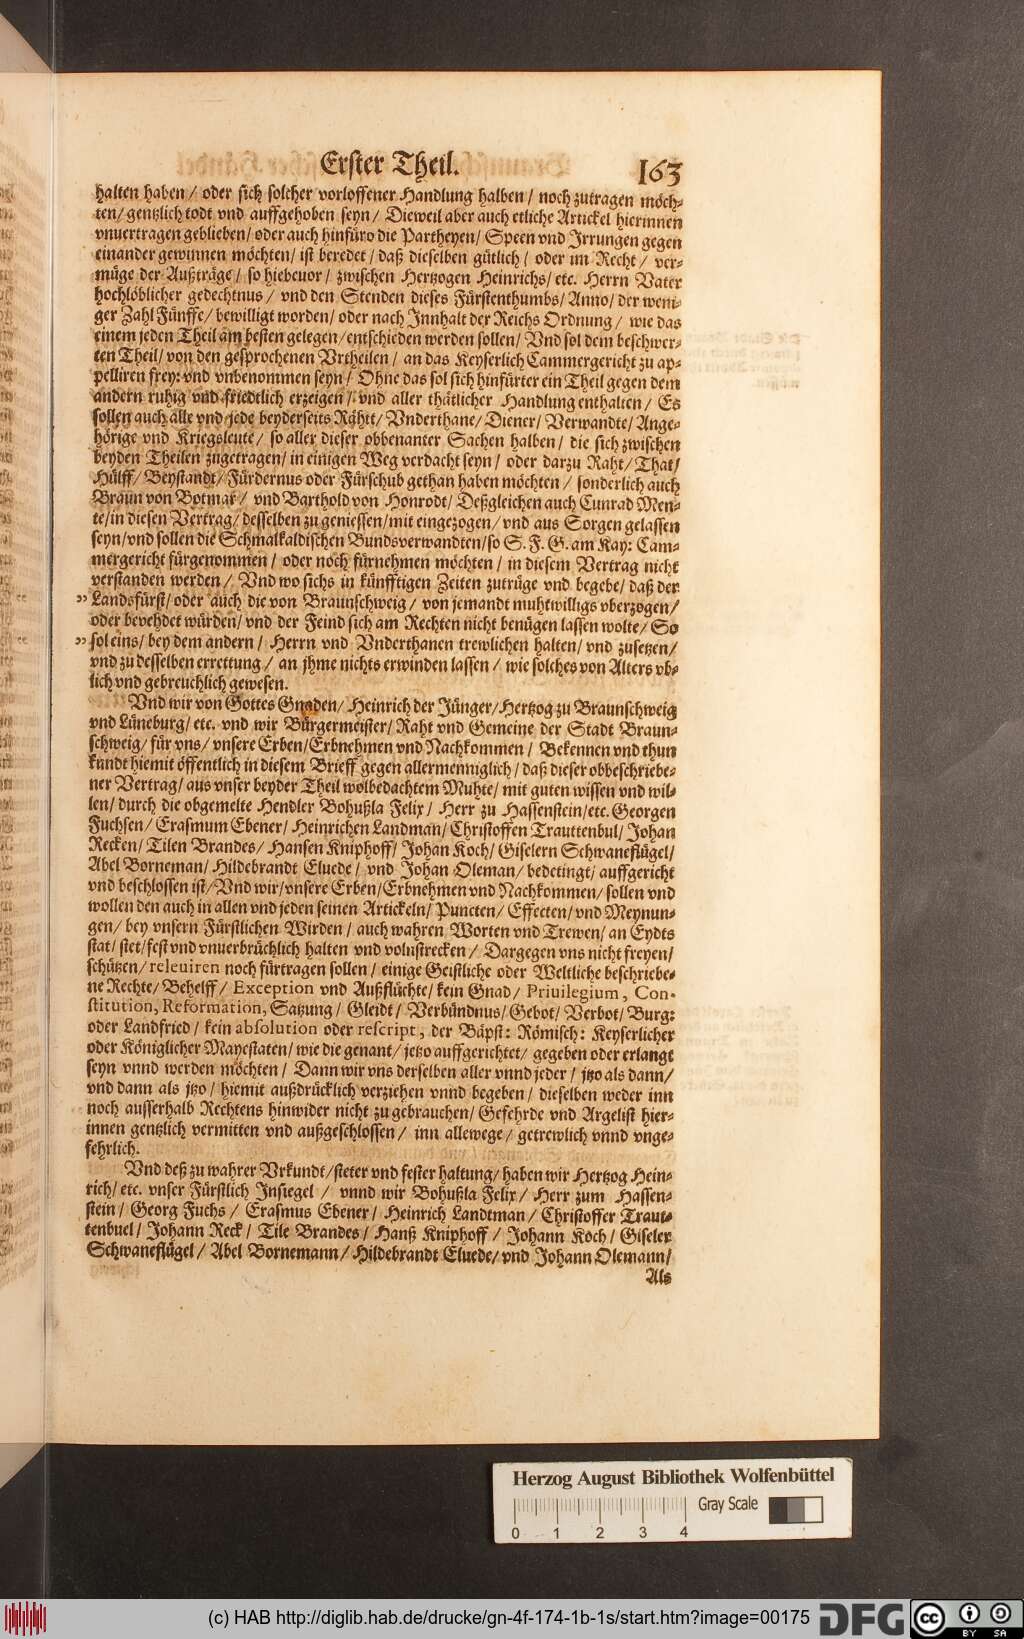 Erster Theil. 163
halten haben / oder sich solcher vorloffener Handlung halben / noch zutragen möch-
ten / gentzlich todt vnd auffgehoben seyn / Dieweil aber auch etliche Artickel hierinnen
vnuertragen geblieben / oder auch hinfüro die Partheyen / Speen vnd Irrungen gegen
einander gewinnen möchten / ist beredet / daß dieselben gütlich / oder im Recht / ver-
müge der Außträge / so hiebeuor / zwischen Hertzogen Heinrichs / etc. Herrn Vater
hochlöblicher gedechtnus / vnd den Stenden dieses Fürstenthumbs / Anno / der weni-
ger Zahl Fünffe / bewilligt worden / oder nach Innhalt der Reichs Ordnung / wie das
einem jeden Theil am besten gelegen / entschieden werden sollen / Vnd sol dem beschwer-
ten Theil / von den gesprochenen Vrtheilen / an das Keyserlich Cammergericht zu ap-
pelliren frey: vnd vnbenommen seyn / Ohne das sol sich hinfürter ein Theil gegen dem
andern ruhig vnd friedtlich erzeigen / vnd aller thätlicher Handlung enthalten / Es
sollen auch alle vnd jede beyderseits Rähte / Vnderthane / Diener / Verwandte / Ange-
hörige vnd Kriegsleute / so aller dieser obbenanter Sachen halben / die sich zwischen
beyden Theilen zugetragen / in einigen Weg verdacht seyn / oder darzu Raht / That /
Hülff / Beystandt / Fürdernus oder Fürschub gethan haben möchten / sonderlich auch
Braun von Botmar / vnd Barthold von Honrodt / Deßgleichen auch Cunrad Men-
te / in diesen Vertrag / desselben zu geniessen / mit eingezogen / vnd aus Sorgen gelassen
seyn / vnd sollen die Schmalkaldischen Bundsverwandten / so S. F. G. am Kay: Cam-
mergericht fürgenommen / oder noch fürnehmen möchten / in diesem Vertrag nicht
verstanden werden / Vnd wo sichs in künfftigen Zeiten zutrüge vnd begebe / daß der
" Landsfürst / oder auch die von Braunschweig / von jemandt muhtwilligs vberzogen /
oder bevehdet würden / vnd der Feind sich am Rechten nicht benügen lassen wolte / So
" sol eins / bey dem andern / Herrn vnd Vnderthanen trewlichen halten / vnd zusetzen /
vnd zu desselben errettung / an jhme nichts erwinden lassen / wie solches von Alters vb-
lich vnd gebreuchlich gewesen.
Vnd wir von Gottes Gnaden / Heinrich der Jünger / Hertzog zu Braunschweig
vnd Lüneburg / etc. vnd wir Bürgermeister / Raht vnd Gemeine der Stadt Braun-
schweig / für vns / vnsere Erben / Erbnehmen vnd Nachkommen / Bekennen vnd thun
kundt hiemit öffentlich in diesem Brieff gegen allermenniglich / daß dieser obbeschriebe-
ner Vertrag / aus vnser beyder Theil wolbedachtem Muhte / mit guten wissen vnd wil-
len / durch die obgemelte Hendler Bohußla Felix / Herr zu Hassenstein / etc. Georgen
Fuchsen / Erasmum Ebener / Heinrichen Landman / Christoffen Trauttenbul / Johan
Recken / Tilen Brandes / Hansen Kniphoff / Johan Koch / Giselern Schwaneflügel /
Abel Borneman / Hildebrandt Eluede / vnd Johan Oleman / bedetingt / auffgericht
vnd beschlossen ist / Vnd wir / vnsere Erben / Erbnehmen vnd Nachkommen / sollen vnd
wollen den auch in allen vnd jeden seinen Artickeln / Puncten / Effecten / vnd Meynun-
gen / bey vnsern Fürstlichen Wirden / auch wahren Worten vnd Trewen / an Eydts
stat / stet / fest vnd vnuerbrüchlich halten vnd volnstrecken / Dargegen vns nicht freyen /
schützen / releuiren noch fürtragen sollen / einige Geistliche oder Weltliche beschriebe-
ne Rechte / Behelff / Exception vnd Außflüchte / kein Gnad / Priuilegium, Con-
stitution, Reformation, Satzung / Gleidt / Verbündnus / Gebot / Verbot / Burg:
oder Landfried / kein absolution oder rescript, der Bäpst: Römisch: Keyserlicher
oder Königlicher Mayestaten / wie die genant / jetzo auffgerichtet / gegeben oder erlangt
seyn vnnd werden möchten / Dann wir vns derselben aller vnnd jeder / jtzo als dann /
vnd dann als jtzo / hiemit außdrücklich verziehen vnnd begeben / dieselben weder inn
noch ausserhalb Rechtens hinwider nicht zu gebrauchen / Gefehrde vnd Argelist hier-
innen gentzlich vermitten vnd außgeschlossen / inn allewege / getrewlich vnnd vnge-
fehrlich.
Vnd deß zu wahrer Vrkundt / steter vnd fester haltung / haben wir Hertzog Hein-
rich / etc. vnser Fürstlich Insiegel / vnnd wir Bohußla Felix / Herr zum Hassen-
stein / Georg Fuchs / Erasmus Ebener / Heinrich Landtman / Christoffer Traut-
tenbuel / Johann Reck / Tile Brandes / Hanß Kniphoff / Johann Koch / Giseler
Schwaneflügel / Abel Bornemann / Hildebrandt Eluede / vnd Johann Olemann /
Als
Herzog August Bibliothek Wolfenbüttel
Gray Scale
0 1 2 3 4
(c) HAB http://diglib.hab.de/drucke/gn-4f-174-1b-1s/start.htm?image=00175 DFG cc BY SA